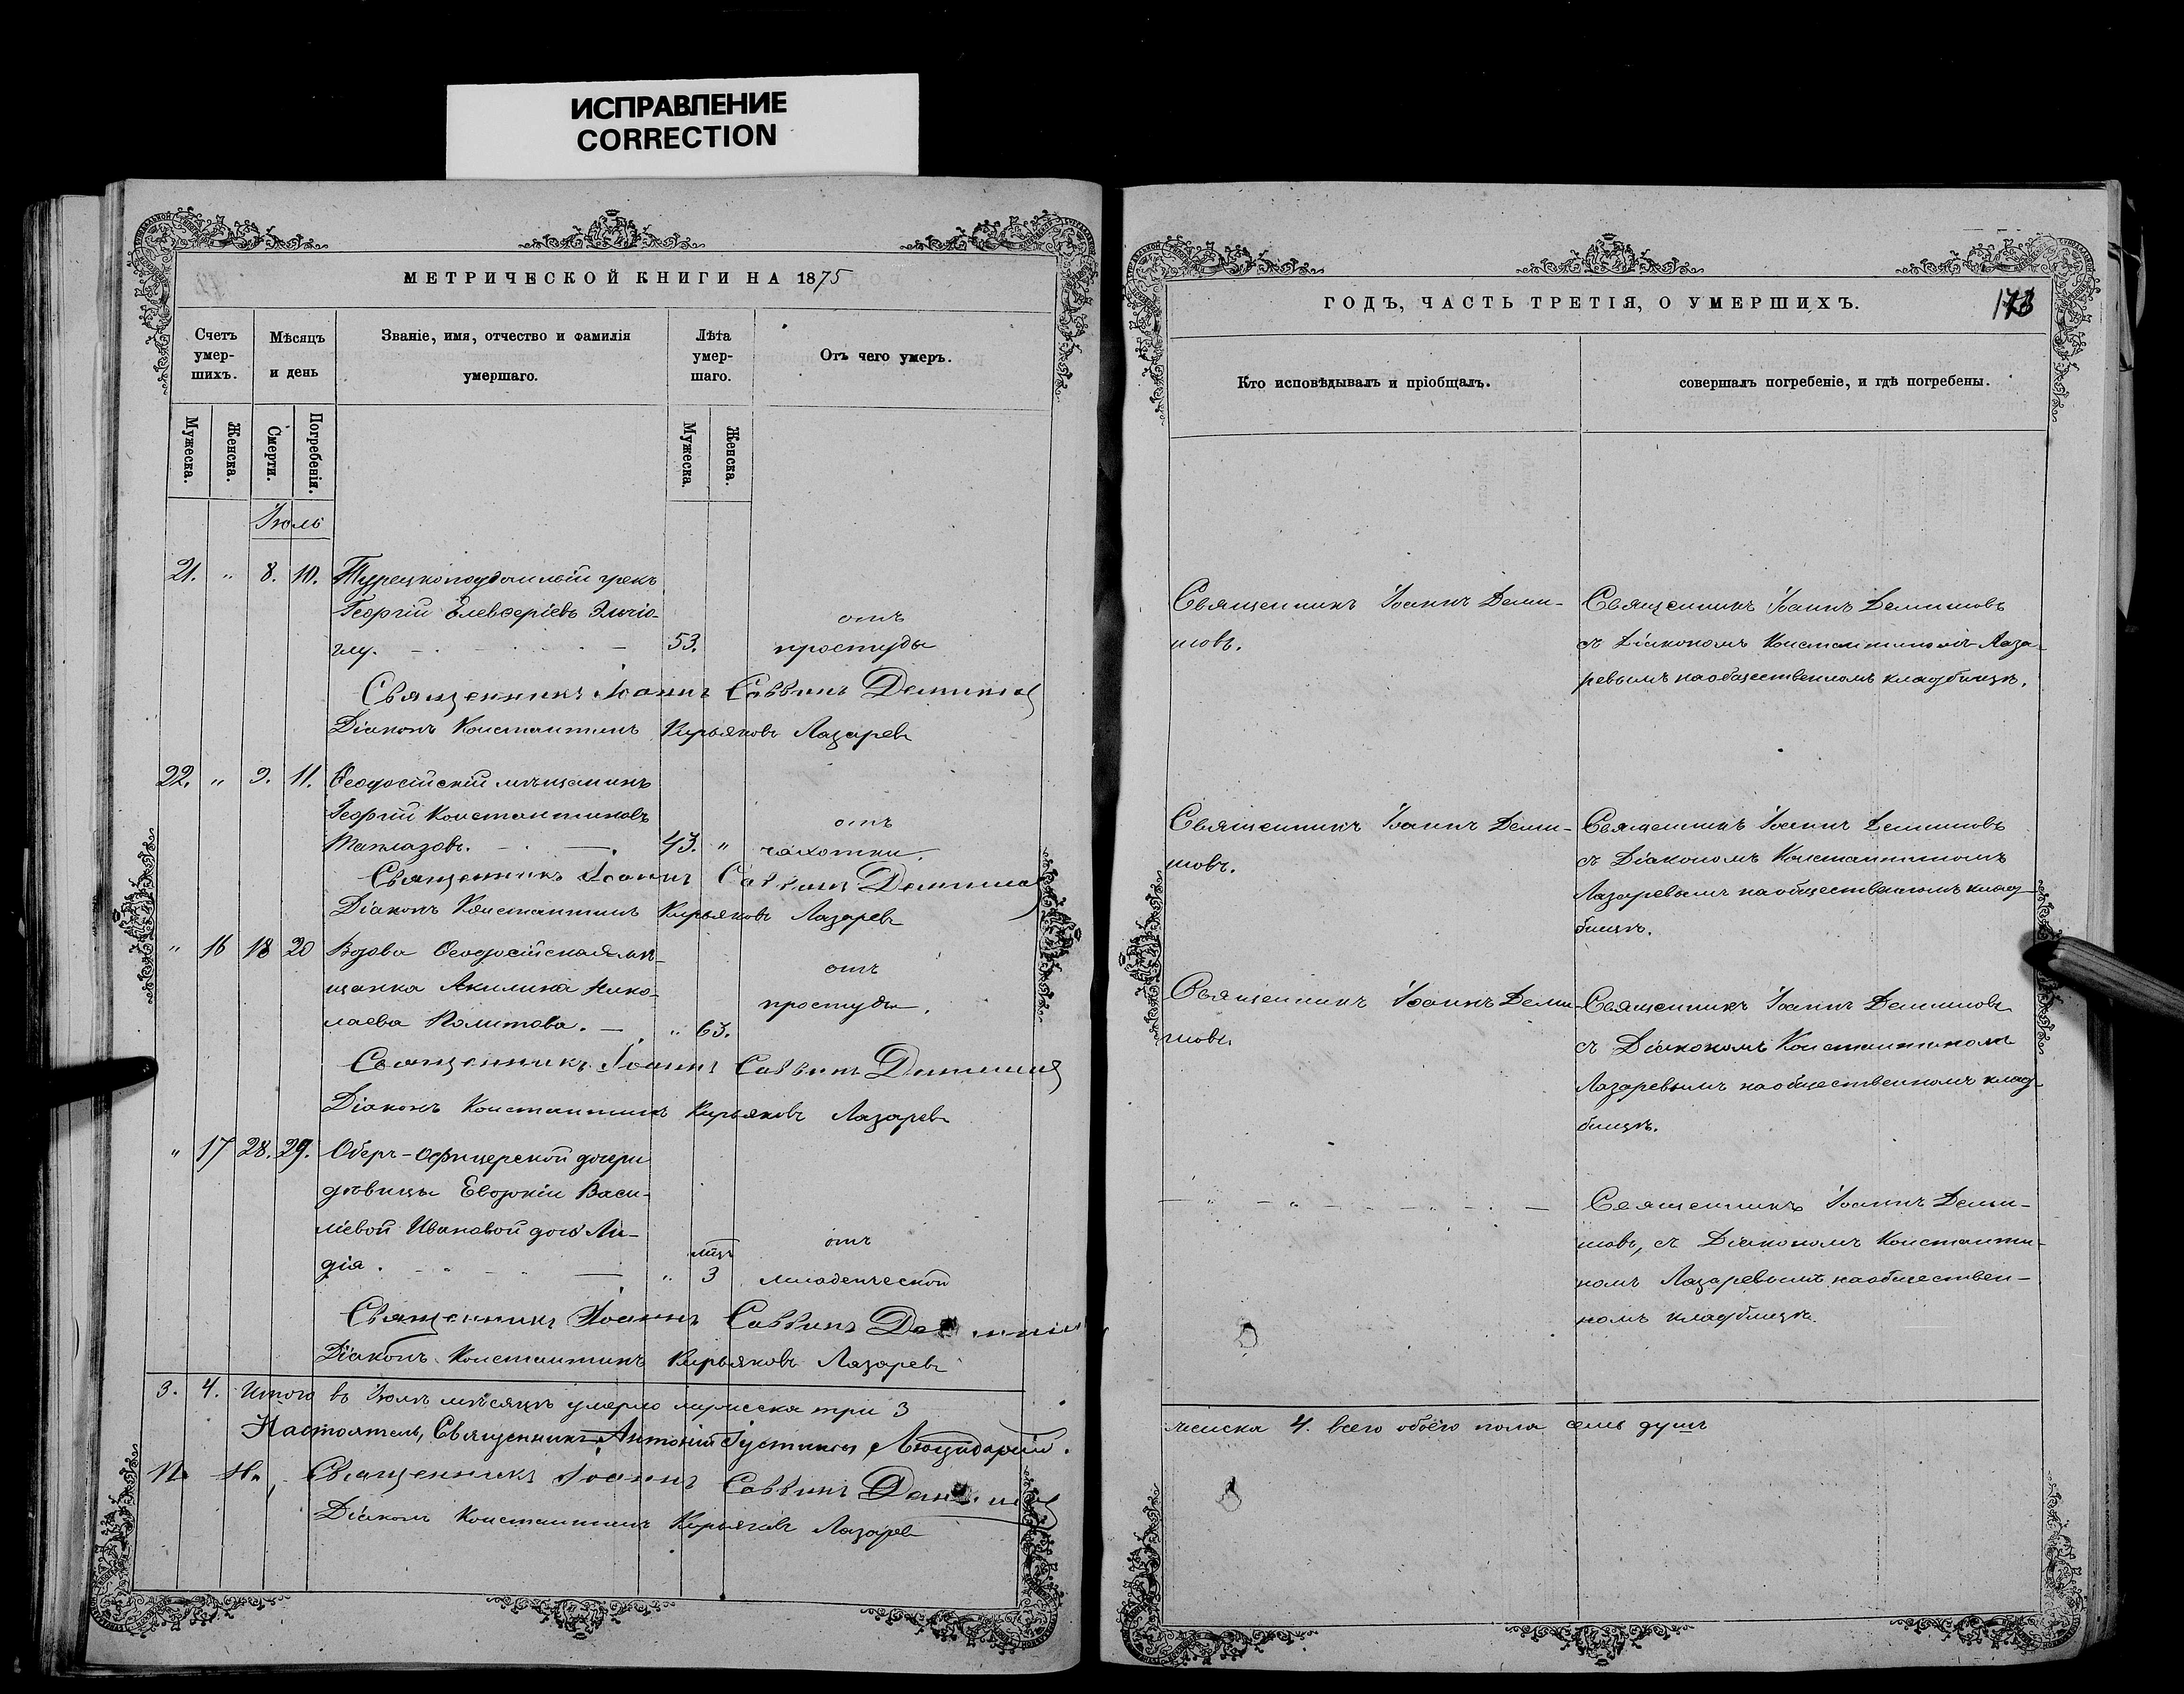 ИСПРАВЛЕНИЕ
CORRECTION
МЕТРИЧЕСКОЙ КНИГИ НА 1875
Счетъ умер-шихъ.
Мѣсяцъ и день
Званіе, имя, отчество и фамилія умершаго.
Лѣта умер-шаго.
Отъ чего умеръ.
Мужеска.
Женска.
Смерти.
Погребенія.
Мужеска.
Женска.
Іюль
21. " 8. 10. Турецкоподданный грекъ
Георгій Елевѳеріевъ
глу. 53. отъ простуды
Священникъ Іоаннъ Саввинъ Демишовъ
Діаконъ Константинъ Кирьяковъ Лазаревъ
22. " 9. 11. Ѳеодосійскій мѣщанинъ
Георгій Константиновъ
43. " отъ чахотки.
Священникъ Іоаннъ Саввинъ Демишовъ
Діаконъ Константинъ Кирьяковъ Лазаревъ
" 16 18 20 Вдова Ѳеодосійская мѣ-
щанка Акилина Нико-
лаева " 63. отъ простуды.
Священникъ Іоаннъ Саввинъ Демишовъ
Діаконъ Константинъ Кирьяковъ Лазаревъ
" 17 28. 29. Оберъ-Офицерской дочери
дѣвицы Евдокіи Васи-
ліевой Ивановой дочь Ли-
дія. " мѣс. 3 отъ младенческой
Священникъ Іоаннъ Саввинъ Демишовъ
Діаконъ Константинъ Кирьяковъ Лазаревъ
3. 4. Итого въ Іюлѣ мѣсяцѣ умерло мужеска три 3
Настоятель, Священникъ Антоній Іустиновъ
Священникъ Іоаннъ Саввинъ Демишовъ
Діаконъ Константинъ Кирьяковъ Лазаревъ
ГОДЪ, ЧАСТЬ ТРЕТІЯ, О УМЕРШИХЪ.
173
Кто исповѣдывалъ и пріобщалъ.
совершалъ погребеніе, и гдѣ погребены.
Священникъ Іоаннъ Деми-
шовъ.
Священникъ Іоаннъ Демишовъ
съ Діакономъ Константиномъ Лаза-
ревымъ на общественномъ кладбищѣ.
Священникъ Іоаннъ Деми-
шовъ.
Священникъ Іоаннъ Демишовъ
съ Діакономъ Константиномъ
Лазаревымъ на общественномъ клад-
бищѣ.
Священникъ Іоаннъ Деми-
шовъ.
Священникъ Іоаннъ Демишовъ
съ Діакономъ Константиномъ
Лазаревымъ на общественномъ клад-
бищѣ.
Священникъ Іоаннъ Деми-
шовъ, съ Діакономъ Константи-
номъ Лазаревымъ на обществен-
номъ кладбищѣ.
женска 4. всего обоего пола семь душъ